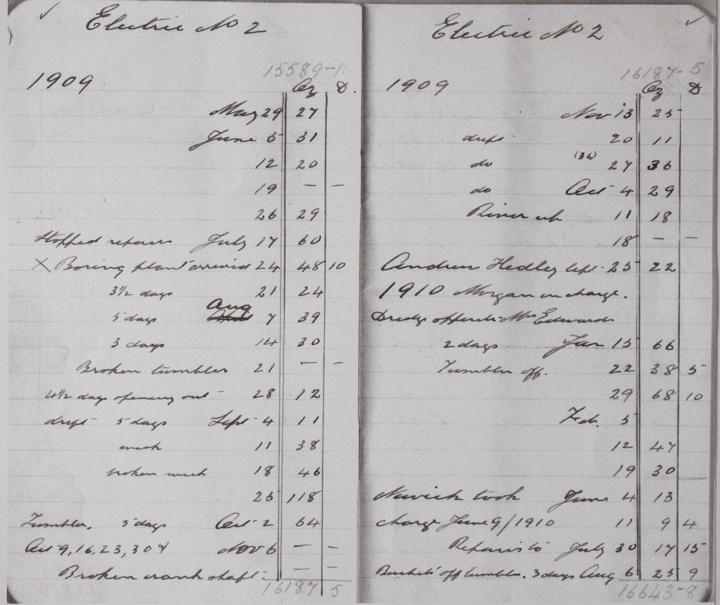 Electric No 2
15589-1
1909 Oz D
May 29 27
June 5 31
12 20
19 — —
26 29
Stopped repairs July 17 60
X Boring plant arrived 24 48 10
3½ days 21 24
5 days Aug 7 39
3 days 14 30
Broken tumbler 21 — —
4½ days opening out 28 12
drift 5 days Sept 4 11
week 11 38
broken week 18 46
25 118
Tumbler. 5 days Oct 2 64
Oct 9, 16, 23, 30 & Nov 6 — —
Broken crank shaft — —
16187 5
Electric No 2
16187-5
1909 Oz D
Nov 13 25
20 11
do (36) 27 36
do Oct 4 29
River up 11 18
18 — —
Andrew Hedley left 25 22
1910 Morgan in charge.
Dredge opposite Mrs Edwards
2 days Jan 15 66
Tumbler off. 22 38 5
29 68 10
Feb. 5
12 47
19 30
took June 4 13
charge June 9/1910 11 9 4
Repairs to July 30 17 15
Buckets off tumbler. 3 days Aug 6 25 9
16643-8